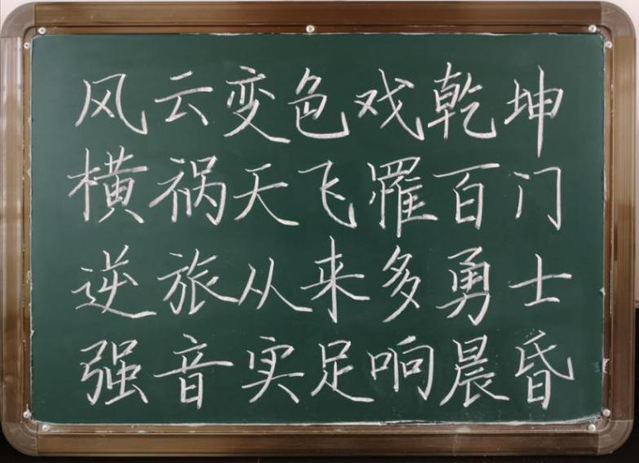 风云变色戏乾坤
横祸天飞罹百门
逆旅从来多勇士
强音实足响晨昏